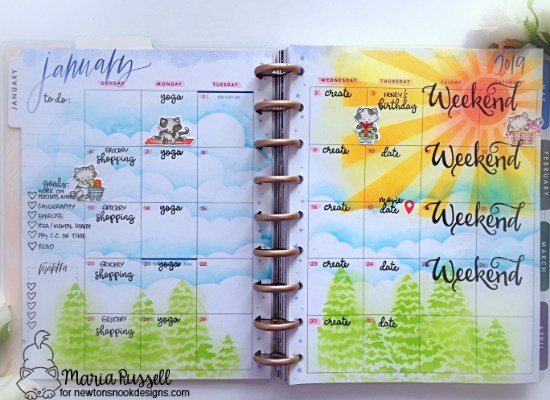 january
2019
JANUARY
SUNDAY MONDAY TUESDAY WEDNESDAY THURSDAY FRIDAY
to do:
yoga
create
HONEY'S
birthday
Weekend
GROCERY
shopping
yoga
create
date
Weekend
goals:
WORK ON
CALLIGRAPHY
EXERCISE
READ
GROCERY
shopping
yoga
create
movie
date
Weekend
GROCERY
shopping
yoga
22
create
date
Weekend
GROCERY
shopping
yoga
29
create
date
FEBRUARY
MARCH
APRIL
Maria Russell
for newtonsnookdesigns.com